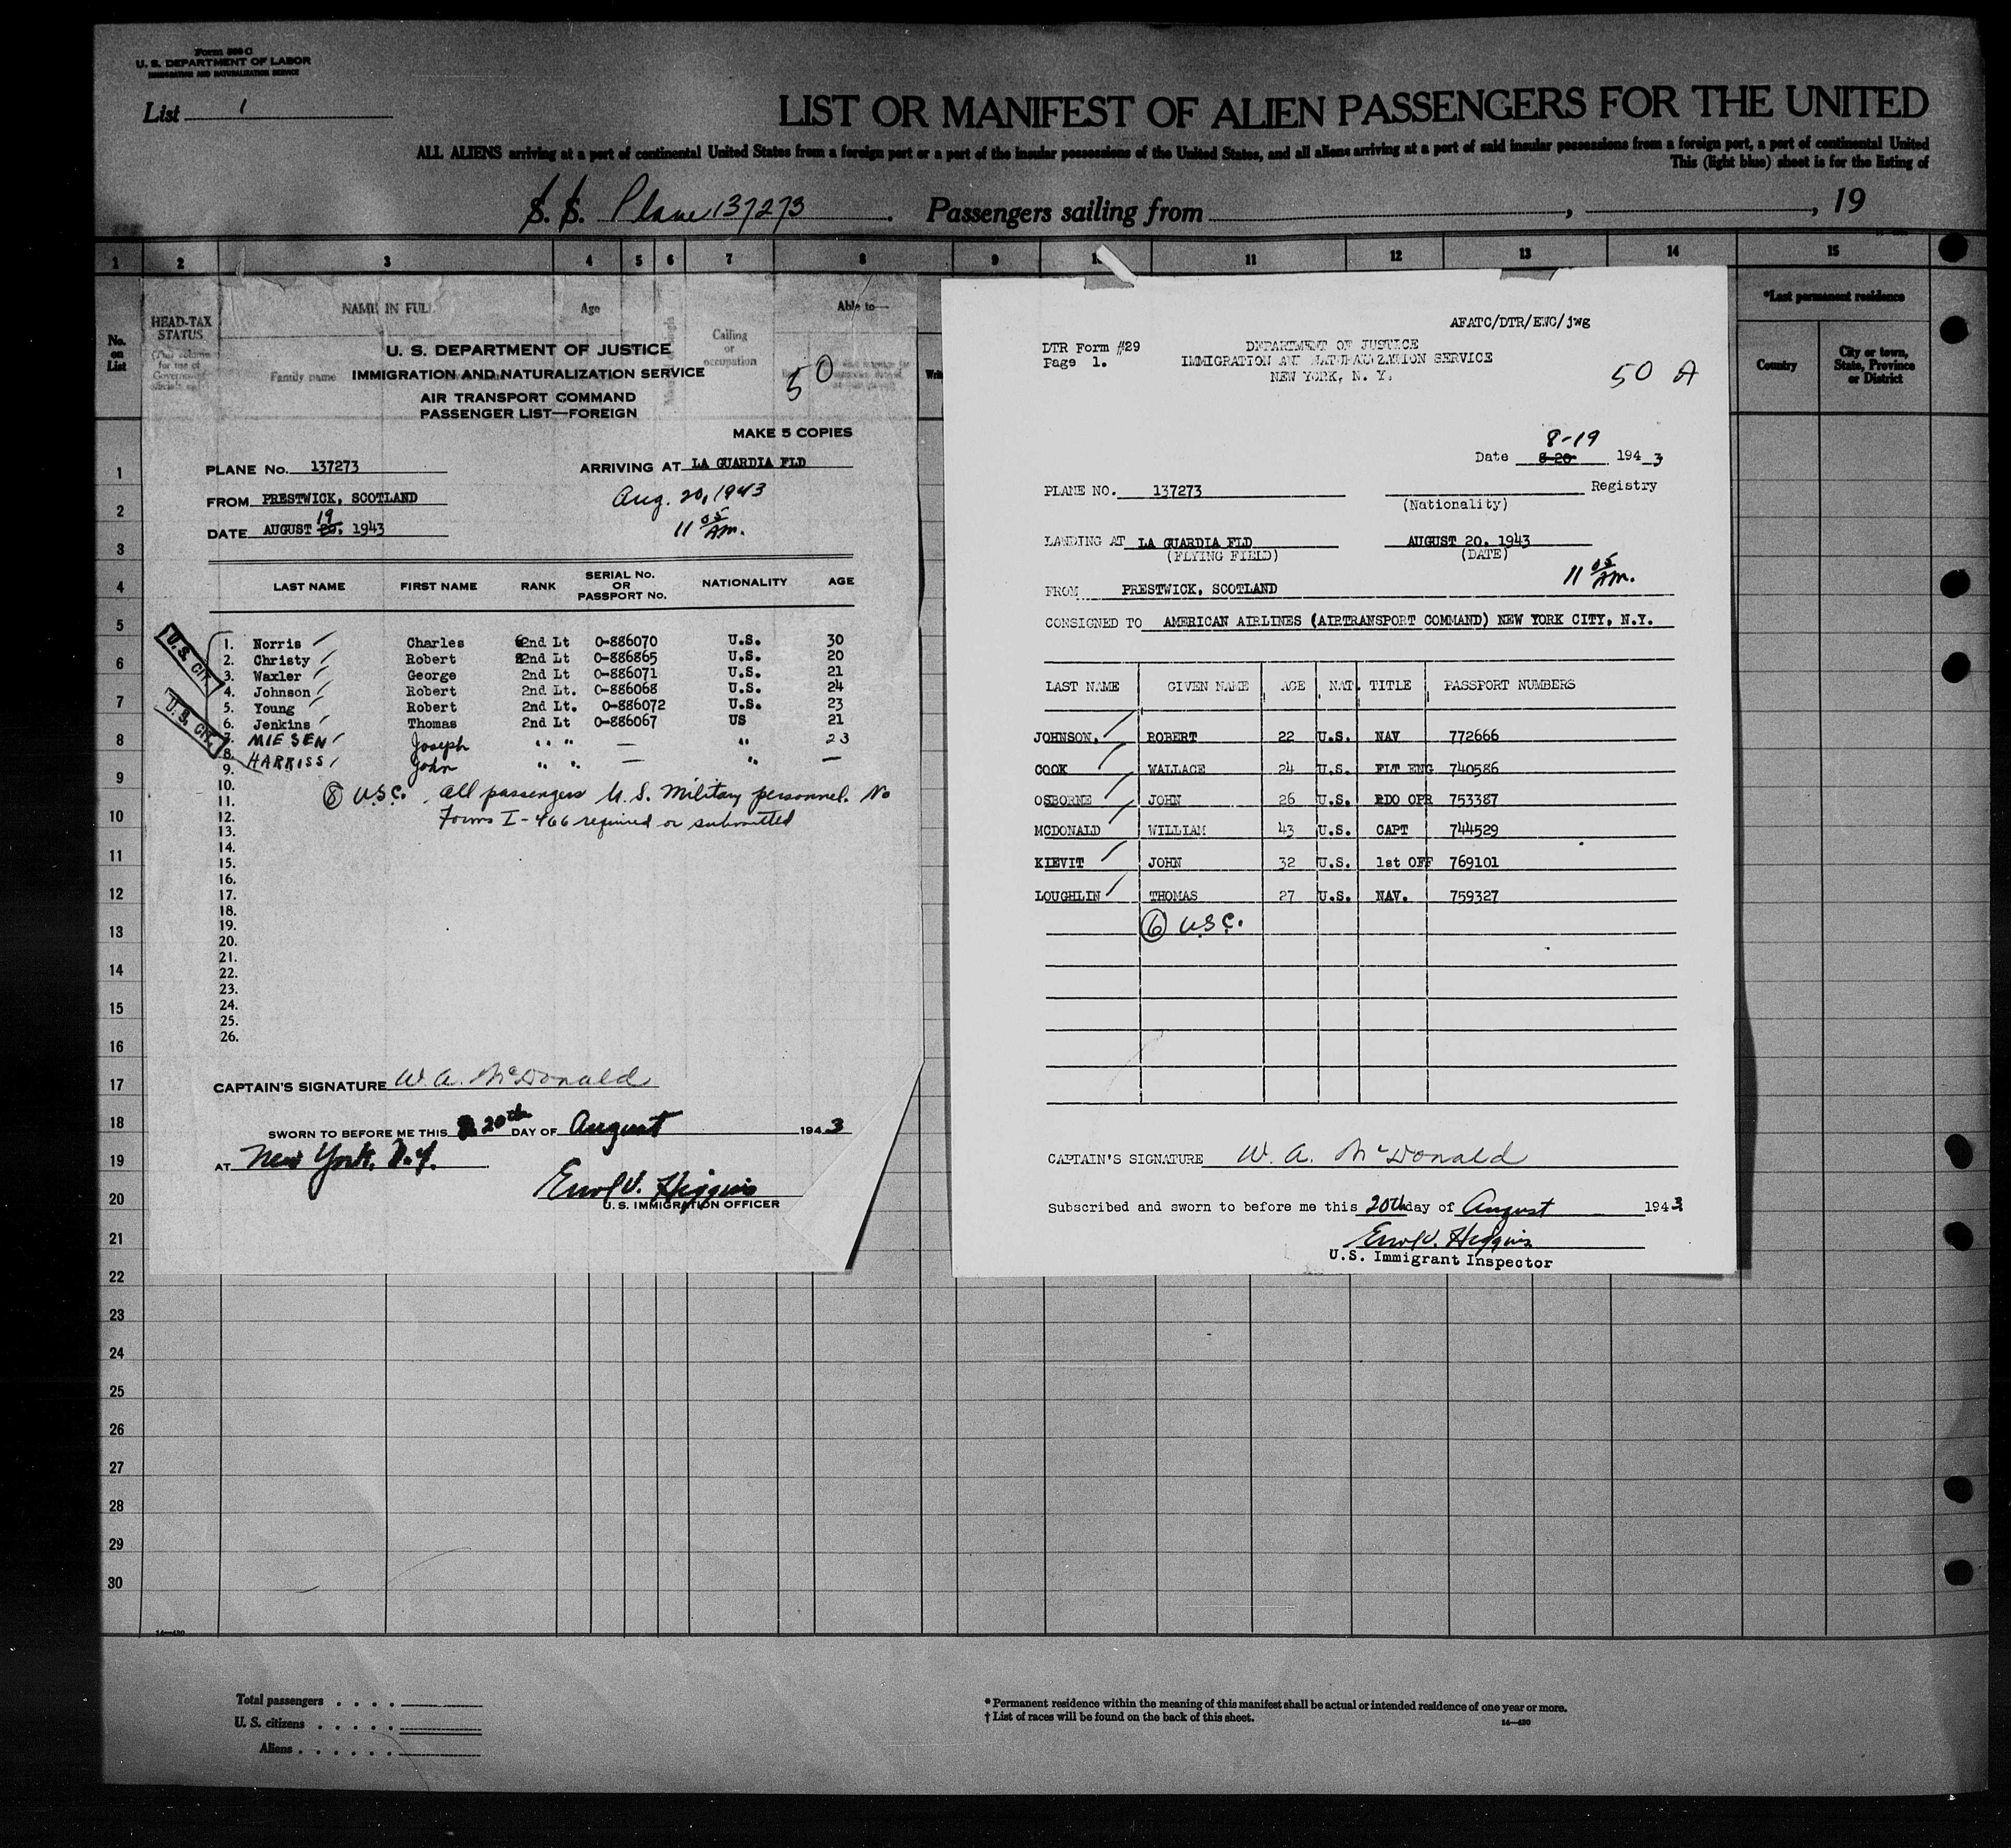 Form 500 C
U. S. DEPARTMENT OF LABOR
IMMIGRATION AND NATURALIZATION SERVICE
List 1
LIST OR MANIFEST OF ALIEN PASSENGERS FOR THE UNITED
ALL ALIENS arriving at a port of continental United States from a foreign port or a port of the insular possessions of the United States, and all aliens arriving at a port of said insular possessions from a foreign port, a port of continental United
This (light blue) sheet is for the listing of
S. S. Plane 137273. Passengers sailing from , , 19
1 2 3 4 5 6 7 8 9 11 12 13 14 15
No. on List
HEAD-TAX STATUS
NAME IN FULL
Family name
Age
Calling or occupation
Able to—
*Last permanent residence
Country
City or town, State, Province or District
U. S. DEPARTMENT OF JUSTICE
IMMIGRATION AND NATURALIZATION SERVICE
AIR TRANSPORT COMMAND
PASSENGER LIST—FOREIGN
50
MAKE 5 COPIES
PLANE No. 137273 ARRIVING AT LA GUARDIA FLD
FROM PRESTWICK, SCOTLAND Aug. 20, 1943
DATE AUGUST 20, 19 1943 11 05 AM.
LAST NAME FIRST NAME RANK SERIAL No. OR PASSPORT No. NATIONALITY AGE
U. S. CIT.
U. S. CIT.
1. Norris Charles 2nd Lt 0-886070 U.S. 30
2. Christy Robert 2nd Lt 0-886865 U.S. 20
3. Waxler George 2nd Lt 0-886071 U.S. 21
4. Johnson Robert 2nd Lt. 0-886068 U.S. 24
5. Young Robert 2nd Lt. 0-886072 U.S. 23
6. Jenkins Thomas 2nd Lt 0-886067 US 21
7. MIESEN Joseph " " — " 23
8. HARRISS John " " — " —
9.
10.
11. (8) U.S.C. All passengers U.S. Military personnel. No
12. Forms I-466 required or submitted
13.
14.
15.
16.
17.
18.
19.
20.
21.
22.
23.
24.
25.
26.
CAPTAIN'S SIGNATURE W. A. McDonald
SWORN TO BEFORE ME THIS 20th DAY OF August 1943
AT New York, N.Y.
Errol V. Higgins
U. S. IMMIGRATION OFFICER
AFATC/DTR/EWC/jwg
DTR Form #29
Page 1.
DEPARTMENT OF JUSTICE
IMMIGRATION AND NATURALIZATION SERVICE
NEW YORK, N. Y.
50 A
8-19
Date 8-20 1943
PLANE NO. 137273 Registry
(Nationality)
LANDING AT LA GUARDIA FLD AUGUST 20, 1943
(FLYING FIELD) (DATE)
11 05 AM.
FROM PRESTWICK, SCOTLAND
CONSIGNED TO AMERICAN AIRLINES (AIRTRANSPORT COMMAND) NEW YORK CITY, N.Y.
LAST NAME GIVEN NAME AGE NAT. TITLE PASSPORT NUMBERS
JOHNSON, ROBERT 22 U.S. NAV 772666
COOK WALLACE 24 U.S. FLT ENG 740586
OSBORNE JOHN 26 U.S. RDO OPR 753387
MCDONALD WILLIAM 43 U.S. CAPT 744529
KIEVIT JOHN 32 U.S. 1st OFF 769101
LOUGHLIN THOMAS 27 U.S. NAV. 759327
(6) U.S.C.
CAPTAIN'S SIGNATURE W. A. McDonald
Subscribed and sworn to before me this 20th day of August 1943
Errol V. Higgins
U.S. Immigrant Inspector
1
2
3
4
5
6
7
8
9
10
11
12
13
14
15
16
17
18
19
20
21
22
23
24
25
26
27
28
29
30
14—430
Total passengers
U. S. citizens
Aliens
* Permanent residence within the meaning of this manifest shall be actual or intended residence of one year or more.
† List of races will be found on the back of this sheet.
14—430